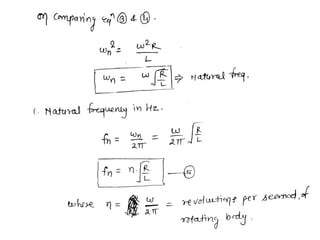 on comparing eqn ③ & ④.
ωn² = ω²R / L
ωn = ω √R/L ⇒ Natural freq.
1. Natural frequency in Hz.
fn = ωn / 2π = ω / 2π √R/L
fn = n √R/L —⑤
where n = ω / 2π = revolutions per second of
rotating body.